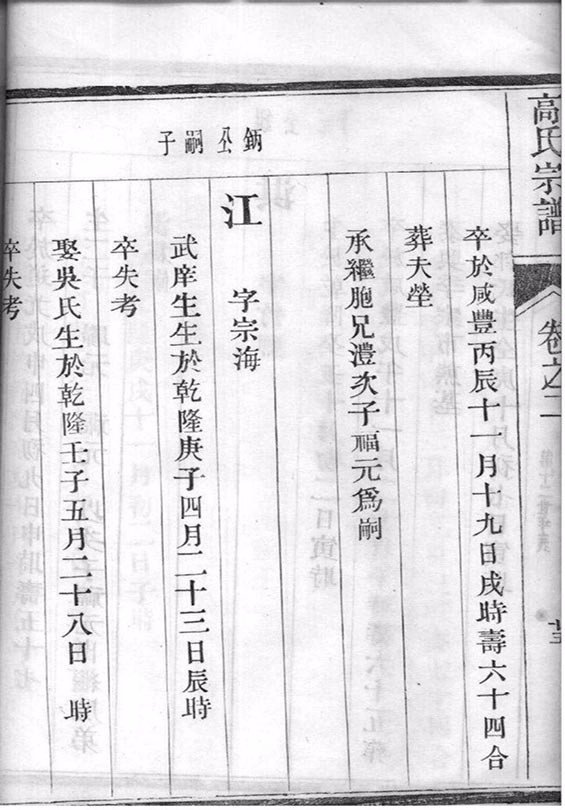 高氏宗譜
卷之二
卒於咸豐丙辰十一月十九日戌時壽六十四合
葬夫塋
承繼胞兄澧次子福元爲嗣
鈵公嗣子
江 字宗海
武庠生生於乾隆庚子四月二十三日辰時
卒失考
娶吳氏生於乾隆壬子五月二十八日 時
卒失考